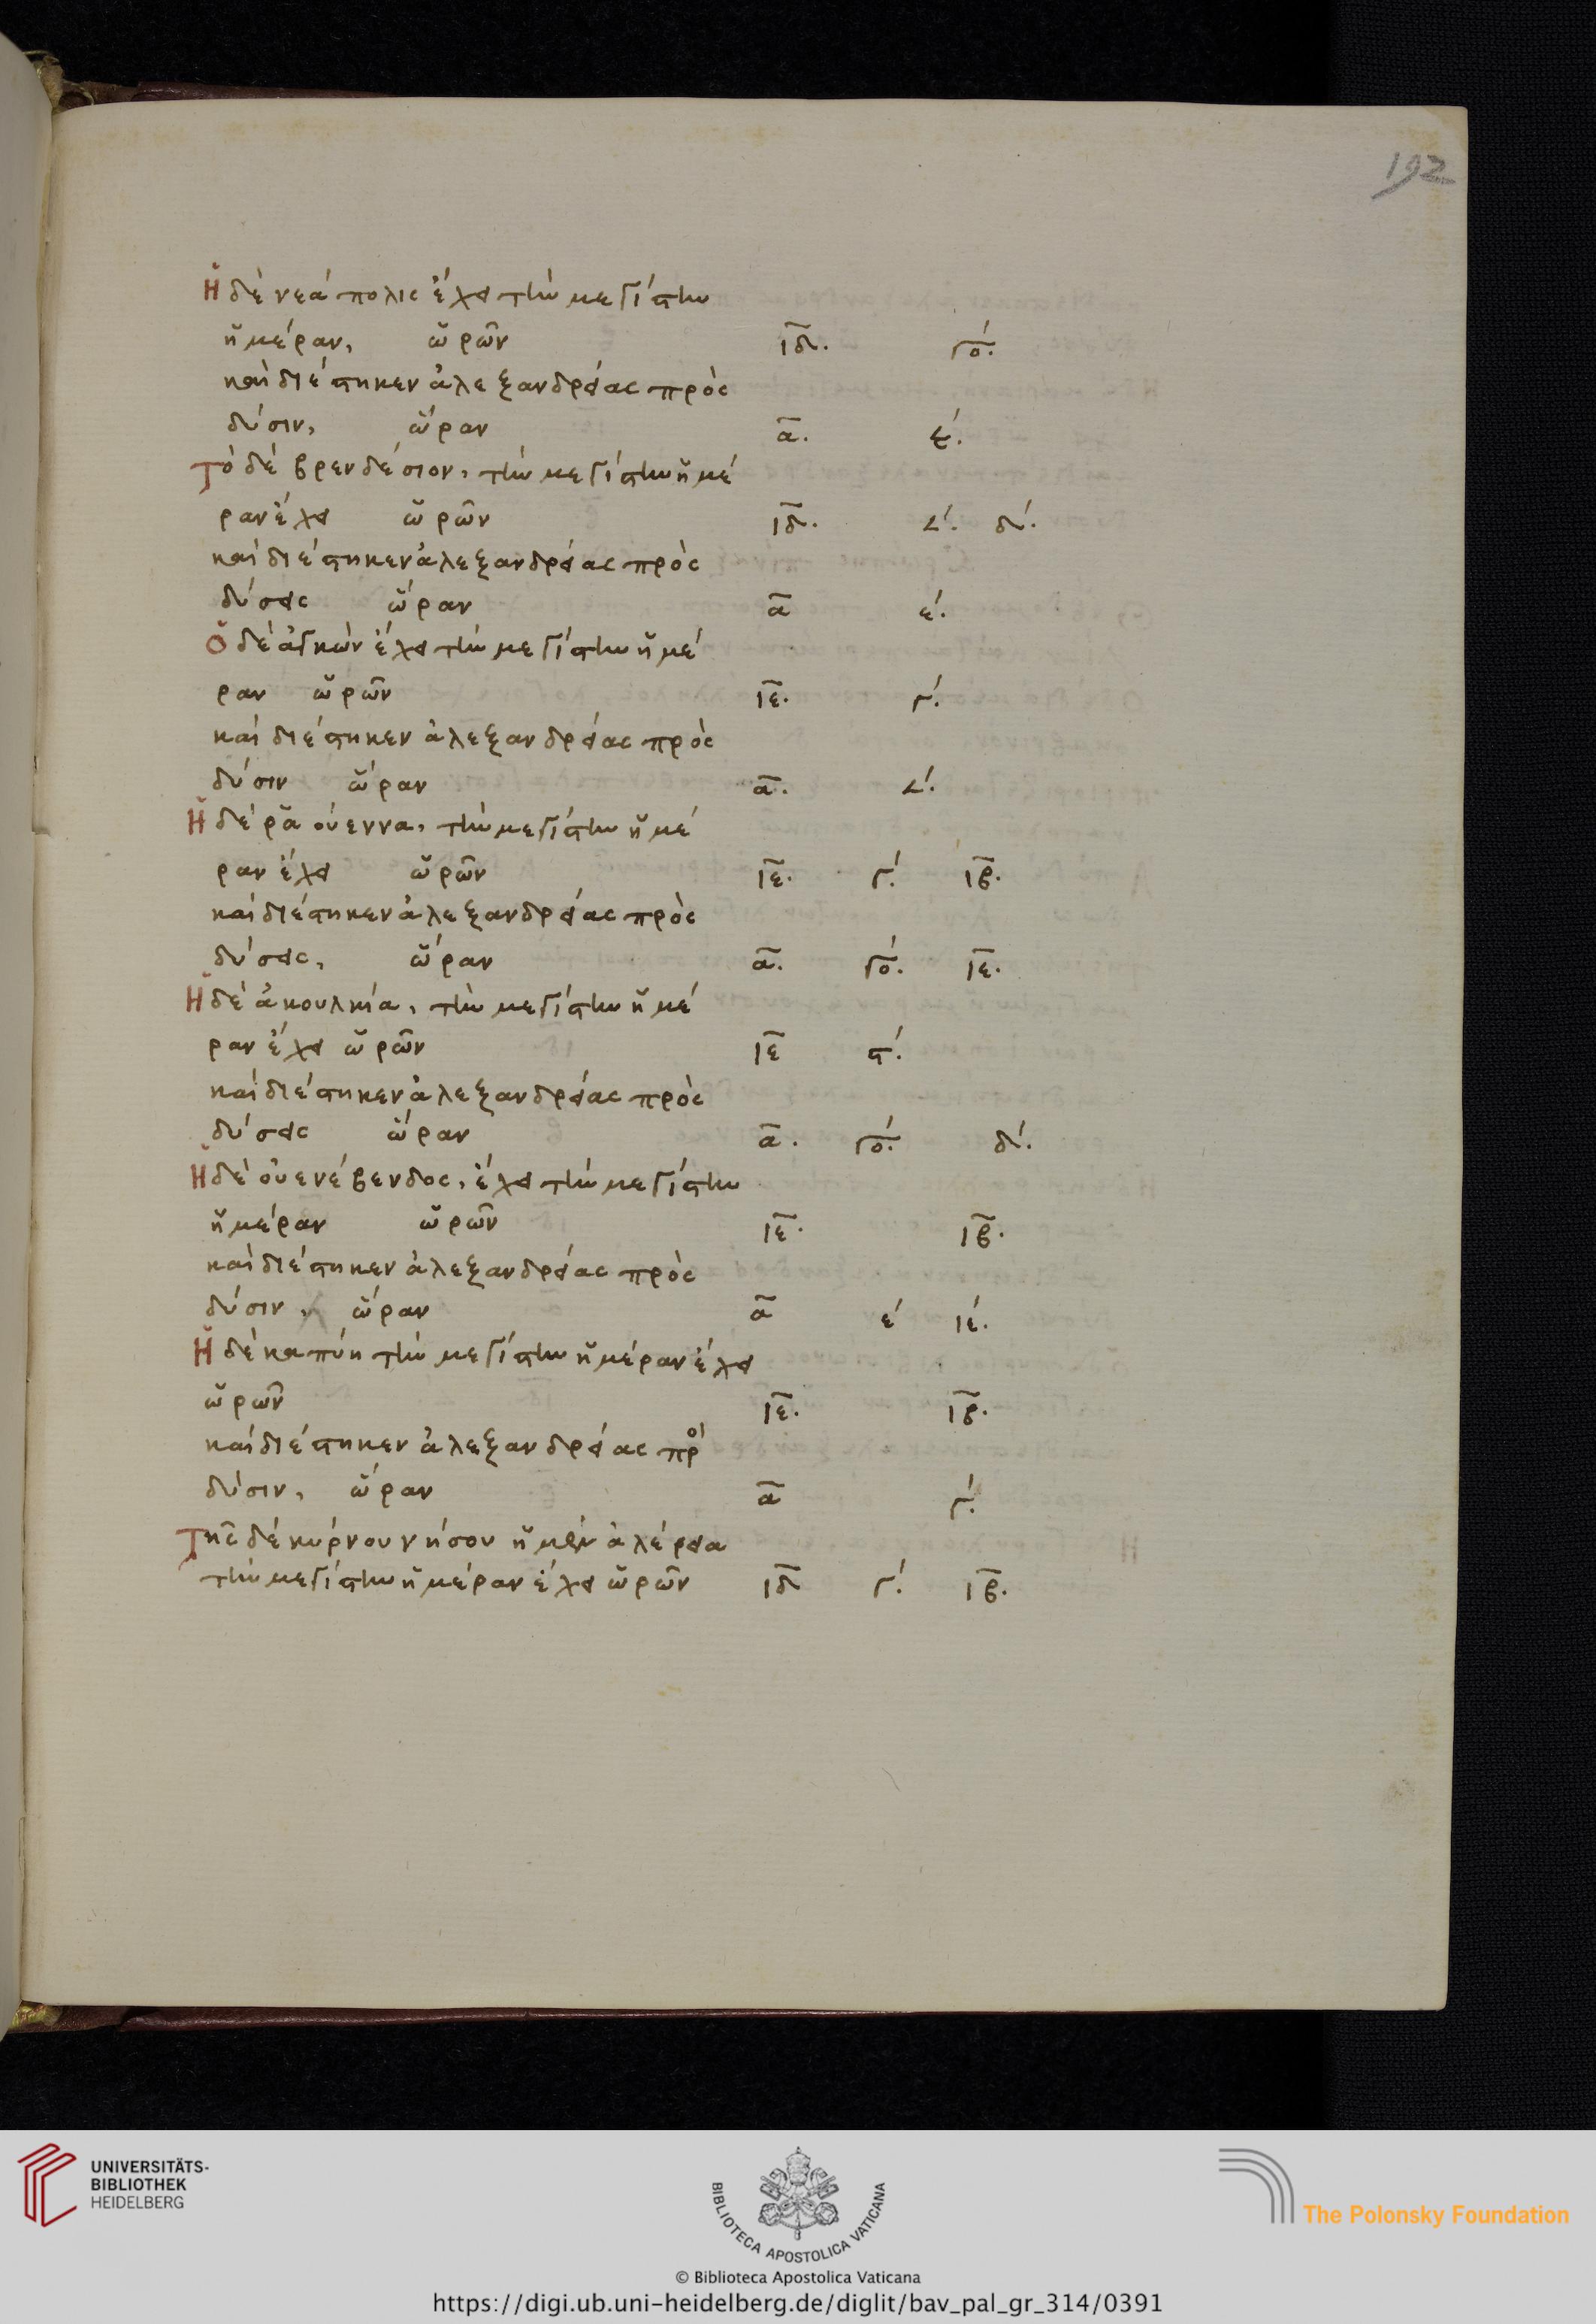 192
Ἡ δὲ νεάπολις ἔχει τὴν μεγίστην
ἡμέραν, ὡρῶν ιδ. γο΄.
καὶ διέστηκεν ἀλεξανδρείας πρὸς
δύσιν, ὥραν α. ϛ΄.
Τὸ δὲ βρενδέσιον, τὴν μεγίστην ἡμέ
ραν ἔχει ὡρῶν ιδ. 𐅵΄. δ΄.
καὶ διέστηκεν ἀλεξανδρείας πρὸς
δύσεις ὥραν α ε΄.
Ὁ δὲ ἀγκὼν ἔχει τὴν μεγίστην ἡμέ
ραν ὡρῶν ιε. γ΄.
καὶ διέστηκεν ἀλεξανδρείας πρὸς
δύσιν ὥραν α. 𐅵΄.
Ἡ δὲ ῥαούεννα, τὴν μεγίστην ἡμέ
ραν ἔχει ὡρῶν ιε. γ΄. ιβ.
καὶ διέστηκεν ἀλεξανδρείας πρὸς
δύσεις, ὥραν α. γο΄. ιε.
Ἡ δὲ ἀκουληία, τὴν μεγίστην ἡμέ
ραν ἔχει ὡρῶν ιε ϛ΄.
καὶ διέστηκεν ἀλεξανδρείας πρὸς
δύσεις ὥραν α. γο΄. δ΄.
Ἡ δὲ οὐενέβενδος, ἔχει τὴν μεγίστην
ἡμέραν ὡρῶν ιε. ιβ.
καὶ διέστηκεν ἀλεξανδρείας πρὸς
δύσιν, ὥραν α ε΄ ιε΄.
Ἡ δὲ καπύη τὴν μεγίστην ἡμέραν ἔχει
ὡρῶν ιε. ιβ.
καὶ διέστηκεν ἀλεξανδρείας πρὸ
δύσιν, ὥραν α γ΄.
Τῆς δὲ κύρνου νήσου ἡ μὲν ἀλέρεια
τὴν μεγίστην ἡμέραν ἔχει ὡρῶν ιδ γ΄. ιβ.
UNIVERSITÄTS-
BIBLIOTHEK
HEIDELBERG
BIBLIOTECA APOSTOLICA VATICANA
The Polonsky Foundation
© Biblioteca Apostolica Vaticana
https://digi.ub.uni-heidelberg.de/diglit/bav_pal_gr_314/0391